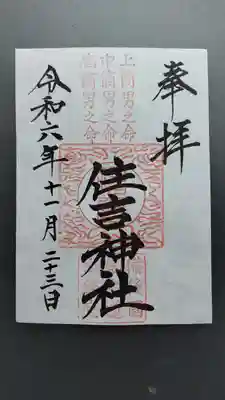 奉拝
上筒男之命
中筒男之命
底筒男之命
住吉神社
令和六年十一月二十三日